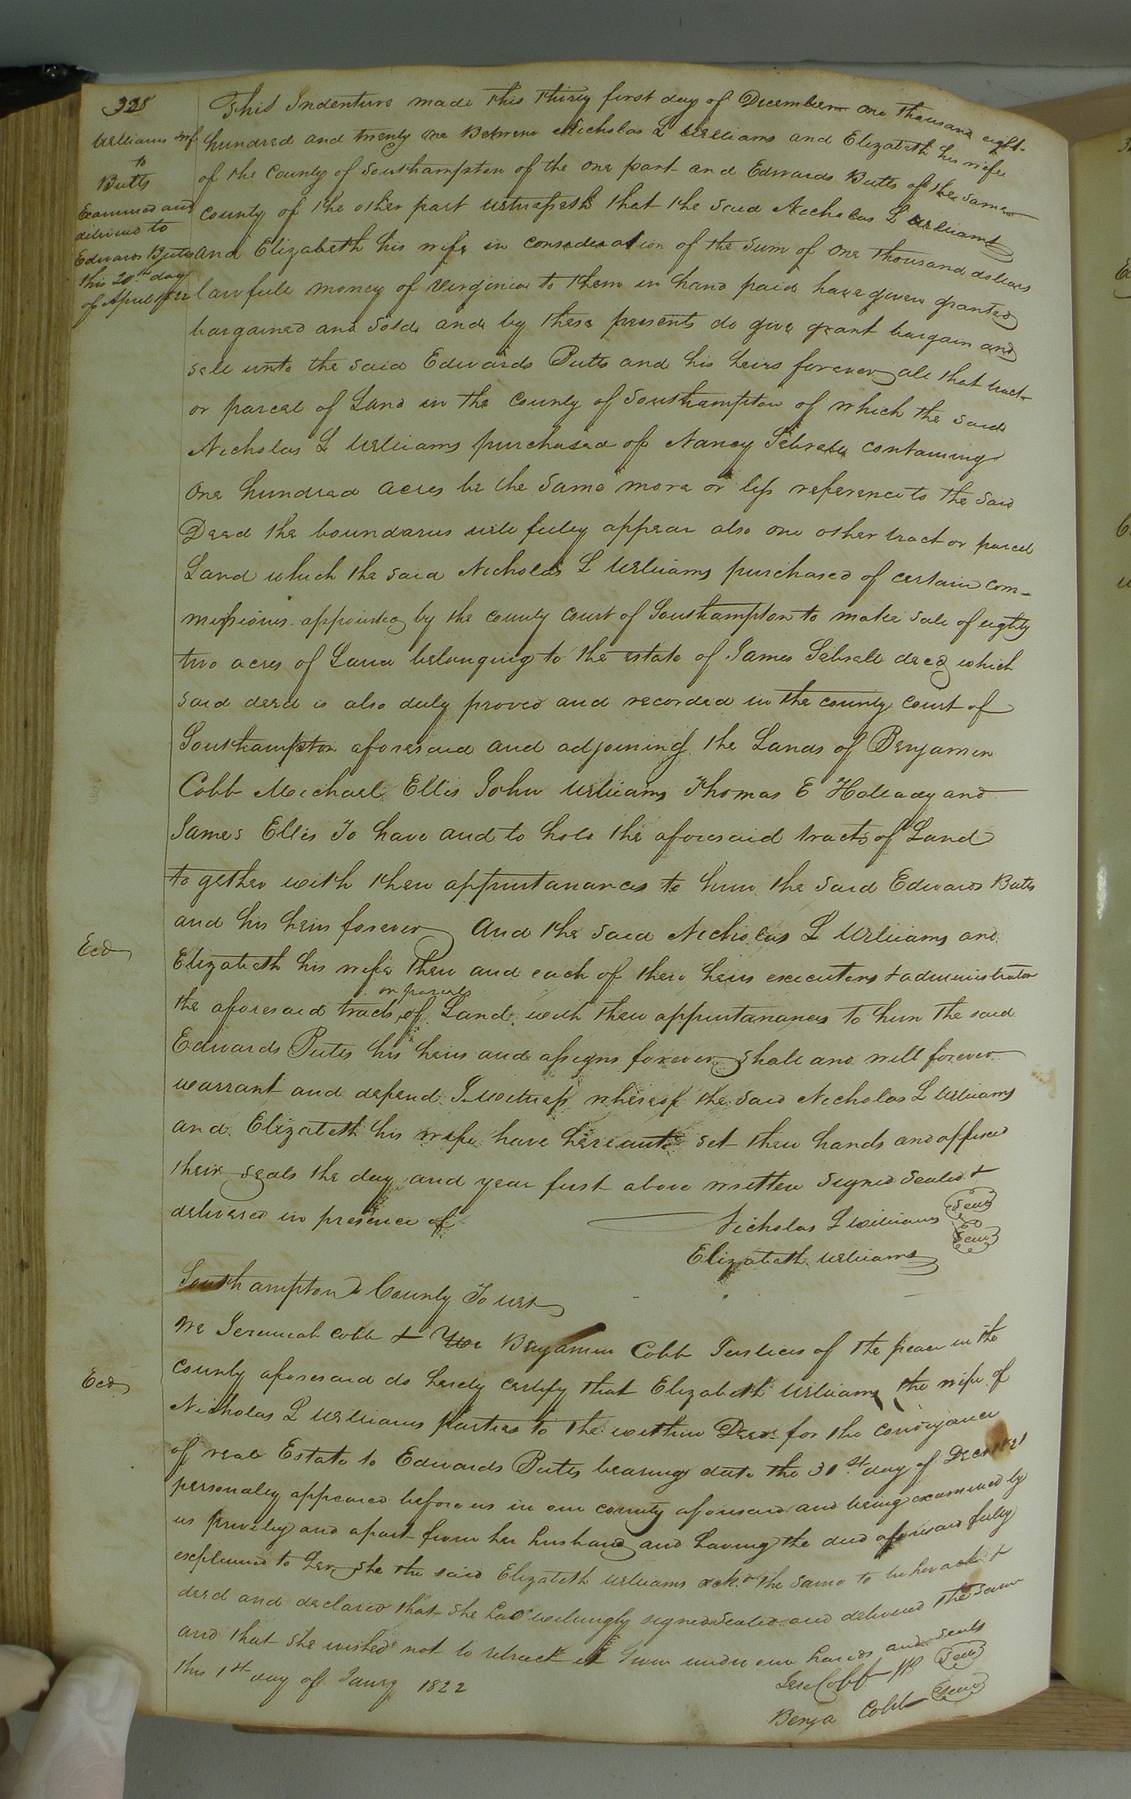 328
Williams & wf
to
Butts
Examined and
delivered to
Edwards Butts
this 20th day
of April 1822
This Indenture made this Thirty first day of December one thousand eight
hundred and twenty one Between Nicholas L Williams and Elizabeth his wife
of the County of Southampton of the one part and Edwards Butts of the same
county of the other part witnesseth that the said Nicholas L Williams
and Elizabeth his wife in consideration of the sum of one thousand dollars
lawfull money of Virginia to them in hand paid have given granted
bargained and sold and by these presents do give grant bargain and
sell unto the said Edwards Butts and his heirs forever all that tract
or parcel of Land in the County of Southampton of which the said
Nicholas L Williams purchased of Nancy Sebrell containing
one hundred acres be the same more or less reference to the said
Deed the boundarus will fulley appear also one other tract or parcel
Land which the said Nicholas L Williams purchased of certain com-
missioners appointed by the county court of Southampton to make sale of eighty
two acres of Land belonging to the estate of James Sebrell decd which
said deed is also duly proved and recorded in the county court of
Southampton aforesaid and adjoining the Lands of Benjamin
Cobb Michael Ellis John Williams Thomas E Holladay and
James Ellis To have and to hold the aforesaid tracts of Land
together with their appurtanances to him the said Edwards Butts
and his heirs forever And the said Nicholas L Williams and
Ecd
Elizabeth his wife their and each of their heirs executors & administrator
or parcels
the aforesaid tracts of Land with their appurtanances to him the said
Edwards Butts his heirs and assigns forever shall and will forever
warrant and defend In witness whereof the said Nicholas L Williams
and Elizabeth his wife have hereunto set their hands and affixed
their seals the day and year first above written Signed Sealed &
delivered in presence of
Nicholas L Williams Seal
Elizabeth Williams Seal
Southampton County To wit
We Jeremiah Cobb & Benjamin Cobb Justices of the peace in the
Ecd
county aforesaid do hereby certify that Elizabeth Williams the wife of
Nicholas L Williams parties to the within Deed for the conveyance
of real Estate to Edwards Butts bearing date the 31st day of Decr 1821
personaley appeared before us in our county aforesaid and being examined by
us privily and apart from her husband and having the deed aforesaid fuley
explained to her she the said Elizabeth Williams ackd the same to be her act &
deed and declared that she had willingly signed sealed and delivered the same
and that she wished not to retract it Given under our hands and seals
this 1st day of Jany 1822
Jere Cobb JP Seal
Benja Cobb Seal